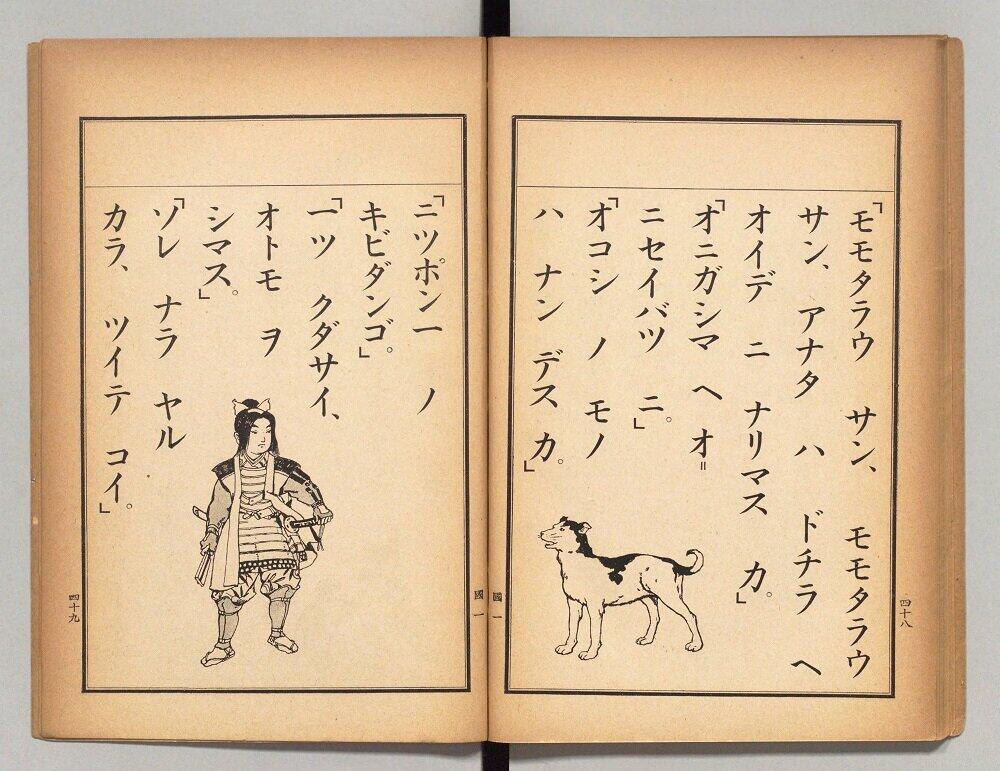 「モモタラウ サン、 モモタラウ
サン、 アナタ ハ ドチラ ヘ
オイデ ニ ナリマス カ。」
「オニガシマ ヘ オ＝
ニセイバツ ニ。」
「オコシ ノ モノ
ハ ナン デス カ。」
四十八
國一
「ニッポン一 ノ
キビダンゴ。」
「一ツ クダサイ、
オトモ ヲ
シマス。」
「ソレ ナラ ヤル
カラ、 ツイテ コイ。」
國一
四十九